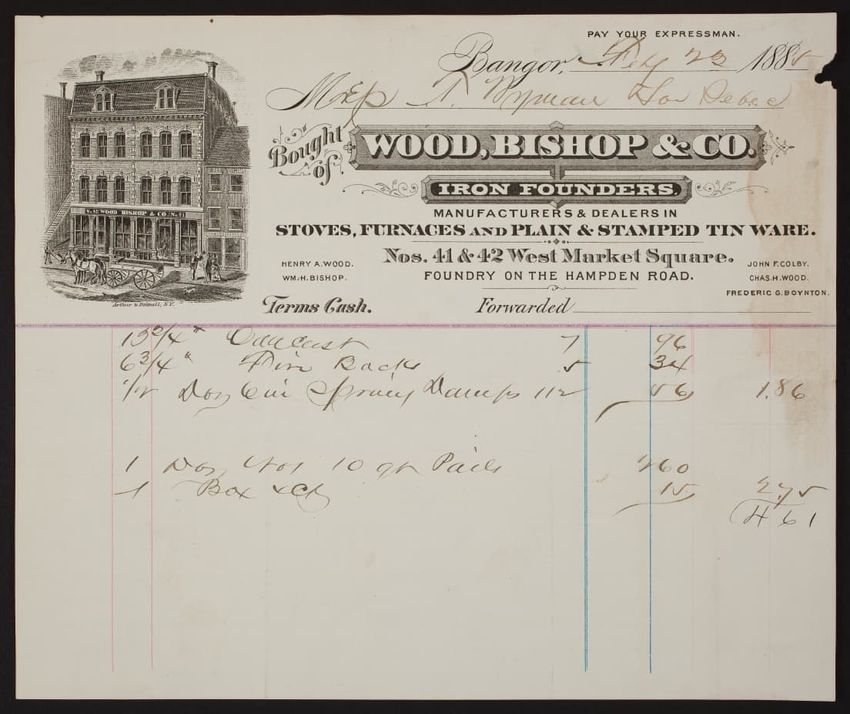 PAY YOUR EXPRESSMAN.
Bangor, Feby 23 1885
Bought of
WOOD, BISHOP & CO.
IRON FOUNDERS,
MANUFACTURERS & DEALERS IN
STOVES, FURNACES AND PLAIN & STAMPED TIN WARE.
Nos. 41 & 42 West Market Square.
FOUNDRY ON THE HAMPDEN ROAD.
HENRY A. WOOD.
WM. H. BISHOP.
JOHN F. COLBY.
CHAS. H. WOOD.
FREDERIC G. BOYNTON.
WOOD BISHOP & CO.
Terms Cash. Forwarded
7 96
6 3/4 " Fire Backs 5 34
1/2 Doz Damps 112 56 1.86
1 Doz No 1 10 qt Pails 260
1 Box & Ctg 15 2.75
4 61